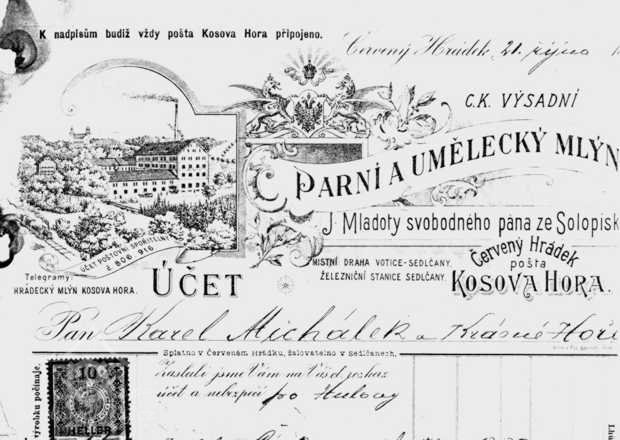 K nadpisům budiž vždy pošta Kosova Hora připojeno.
Červený Hrádek, 21. října
C.K. VÝSADNÍ
PARNÍ A UMĚLECKÝ MLÝN
J. Mladoty svobodného pána ze Solopisk
MÍSTNÍ DRAHA VOTICE-SEDLČANY,
ŽELEZNIČNÍ STANICE SEDLČANY.
Červený Hrádek
pošta
KOSOVA HORA.
ÚČET POŠTOVNÍ SPOŘITELNY
Č 806 916
Telegramy:
HRÁDECKÝ MLÝN KOSOVA HORA.
ÚČET
Pan Karel Michálek
Splatno v Červeném Hrádku, žalovatelno v Sedlčanech.
Zaslali jsme Vám na Váš
účet a nebezpečí pro
10
HELLER
výrobku počínaje.